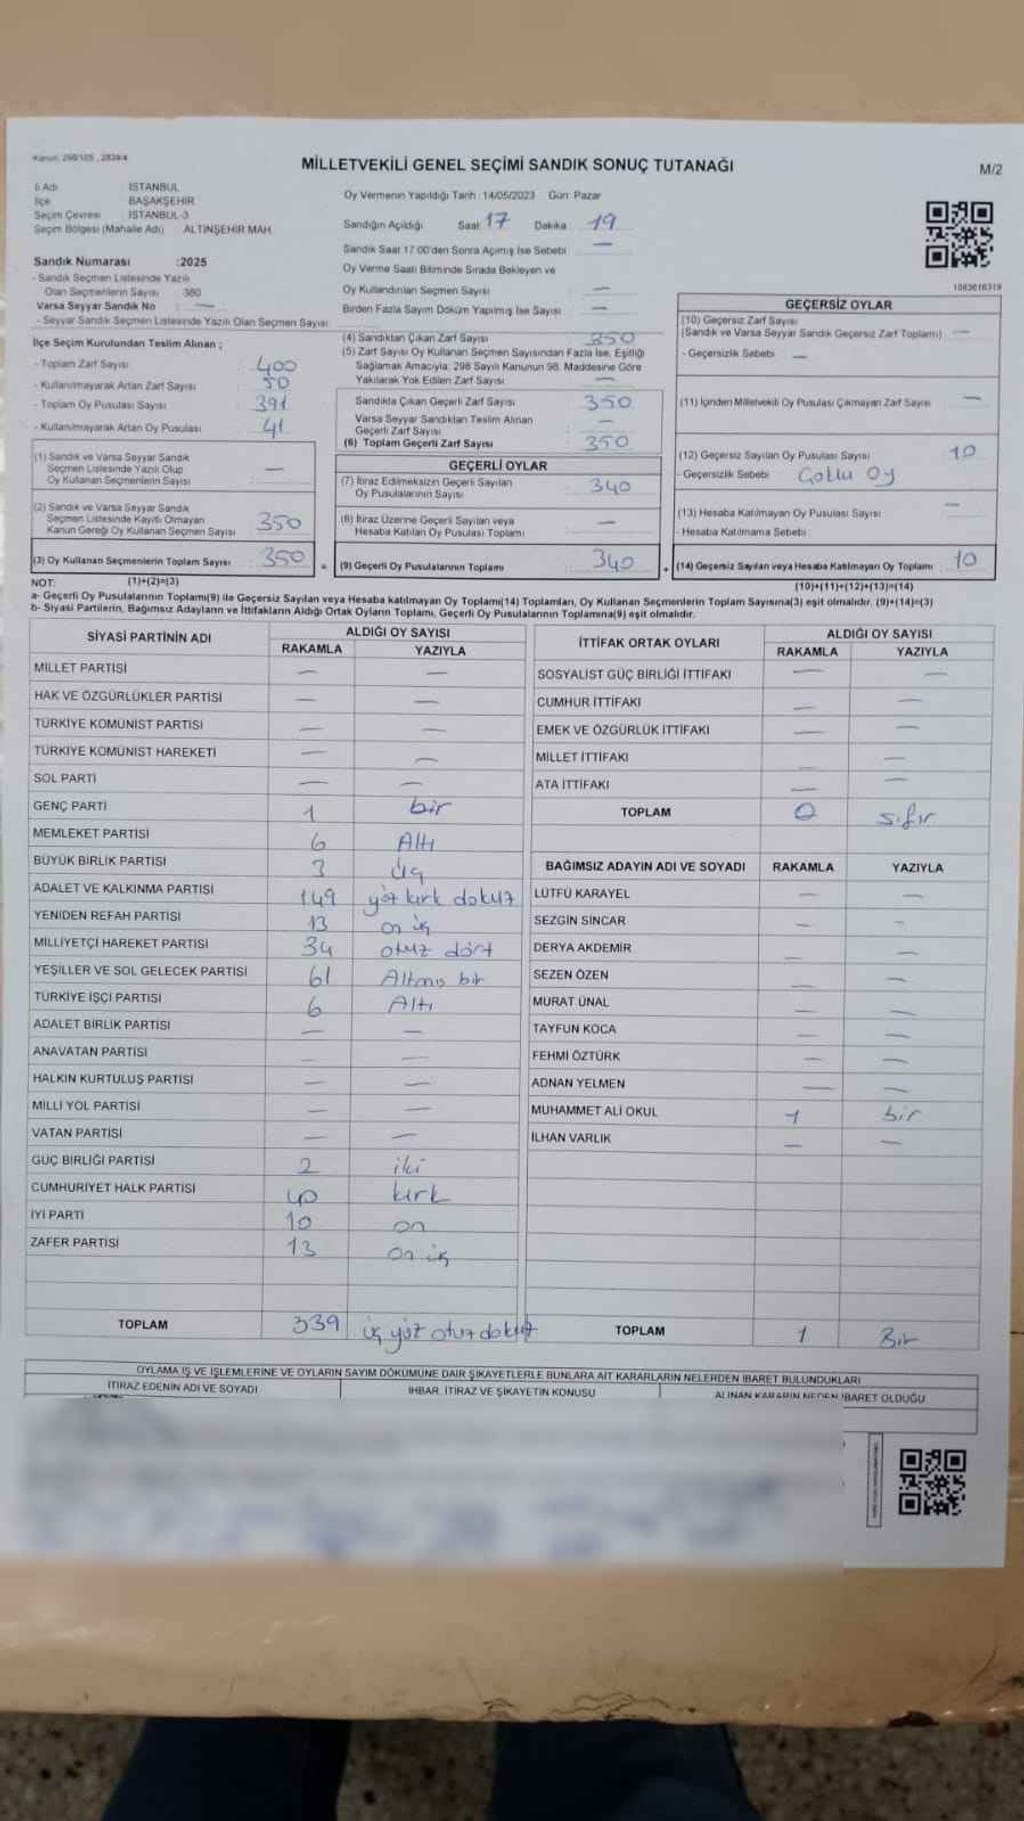 Kanun: 298/105 , 2839/4
MİLLETVEKİLİ GENEL SEÇİMİ SANDIK SONUÇ TUTANAĞI
M/2
İl Adı : İSTANBUL
İlçe : BAŞAKŞEHİR
Seçim Çevresi : İSTANBUL-3
Seçim Bölgesi (Mahalle Adı) : ALTINŞEHİR MAH.
Sandık Numarası :2025
- Sandık Seçmen Listesinde Yazılı
Olan Seçmenlerin Sayısı : 380
Varsa Seyyar Sandık No : —
- Seyyar Sandık Seçmen Listesinde Yazılı Olan Seçmen Sayısı
İlçe Seçim Kurulundan Teslim Alınan ;
- Toplam Zarf Sayısı : 400
- Kullanılmayarak Artan Zarf Sayısı : 50
- Toplam Oy Pusulası Sayısı : 391
- Kullanılmayarak Artan Oy Pusulası : 41
(1) Sandık ve Varsa Seyyar Sandık
Seçmen Listesinde Yazılı Olup
Oy Kullanan Seçmenlerin Sayısı : —
(2) Sandık ve Varsa Seyyar Sandık
Seçmen Listesinde Kayıtlı Olmayan
Kanun Gereği Oy Kullanan Seçmen Sayısı : 350
(3) Oy Kullanan Seçmenlerin Toplam Sayısı : 350
Oy Vermenin Yapıldığı Tarih : 14/05/2023 Gün: Pazar
Sandığın Açıldığı Saat 17 Dakika : 19
Sandık Saat 17:00'den Sonra Açılmış İse Sebebi : —
Oy Verme Saati Bitiminde Sırada Bekleyen ve
Oy Kullandırılan Seçmen Sayısı : —
Birden Fazla Sayım Döküm Yapılmış İse Sayısı : —
(4) Sandıktan Çıkan Zarf Sayısı : 350
(5) Zarf Sayısı Oy Kullanan Seçmen Sayısından Fazla İse, Eşitliği
Sağlamak Amacıyla, 298 Sayılı Kanunun 98. Maddesine Göre
Yakılarak Yok Edilen Zarf Sayısı : —
Sandıkta Çıkan Geçerli Zarf Sayısı : 350
Varsa Seyyar Sandıktan Teslim Alınan
Geçerli Zarf Sayısı : —
(6) Toplam Geçerli Zarf Sayısı : 350
GEÇERLİ OYLAR
(7) İtiraz Edilmeksizin Geçerli Sayılan
Oy Pusulalarının Sayısı : 340
(8) İtiraz Üzerine Geçerli Sayılan veya
Hesaba Katılan Oy Pusulası Toplamı : —
(9) Geçerli Oy Pusulalarının Toplamı : 340
1063616319
GEÇERSİZ OYLAR
(10) Geçersiz Zarf Sayısı
(Sandık ve Varsa Seyyar Sandık Geçersiz Zarf Toplamı) : —
- Geçersizlik Sebebi : —
(11) İçinden Milletvekili Oy Pusulası Çıkmayan Zarf Sayısı : —
(12) Geçersiz Sayılan Oy Pusulası Sayısı : 10
- Geçersizlik Sebebi : Çoklu oy
(13) Hesaba Katılmayan Oy Pusulası Sayısı : —
- Hesaba Katılmama Sebebi :
(14) Geçersiz Sayılan veya Hesaba Katılmayan Oy Toplamı : 10
NOT: (1)+(2)=(3) (10)+(11)+(12)+(13)=(14)
a- Geçerli Oy Pusulalarının Toplamı(9) ile Geçersiz Sayılan veya Hesaba katılmayan Oy Toplamı(14) Toplamları, Oy Kullanan Seçmenlerin Toplam Sayısına(3) eşit olmalıdır. (9)+(14)=(3)
b- Siyasi Partilerin, Bağımsız Adayların ve İttifakların Aldığı Ortak Oyların Toplamı, Geçerli Oy Pusulalarının Toplamına(9) eşit olmalıdır.
SİYASİ PARTİNİN ADI ALDIĞI OY SAYISI
RAKAMLA YAZIYLA
MİLLET PARTİSİ — —
HAK VE ÖZGÜRLÜKLER PARTİSİ — —
TÜRKİYE KOMÜNİST PARTİSİ — —
TÜRKİYE KOMÜNİST HAREKETİ — —
SOL PARTİ — —
GENÇ PARTİ 1 bir
MEMLEKET PARTİSİ 6 Altı
BÜYÜK BİRLİK PARTİSİ 3 üç
ADALET VE KALKINMA PARTİSİ 149 yüz kırk dokuz
YENİDEN REFAH PARTİSİ 13 on üç
MİLLİYETÇİ HAREKET PARTİSİ 34 otuz dört
YEŞİLLER VE SOL GELECEK PARTİSİ 61 Altmış bir
TÜRKİYE İŞÇİ PARTİSİ 6 Altı
ADALET BİRLİK PARTİSİ — —
ANAVATAN PARTİSİ — —
HALKIN KURTULUŞ PARTİSİ — —
MİLLİ YOL PARTİSİ — —
VATAN PARTİSİ — —
GÜÇ BİRLİĞİ PARTİSİ 2 iki
CUMHURİYET HALK PARTİSİ 40 kırk
İYİ PARTİ 10 on
ZAFER PARTİSİ 13 on üç
TOPLAM 339 üç yüz otuz dokuz
İTTİFAK ORTAK OYLARI ALDIĞI OY SAYISI
RAKAMLA YAZIYLA
SOSYALİST GÜÇ BİRLİĞİ İTTİFAKI — —
CUMHUR İTTİFAKI — —
EMEK VE ÖZGÜRLÜK İTTİFAKI — —
MİLLET İTTİFAKI — —
ATA İTTİFAKI — —
TOPLAM 0 sıfır
BAĞIMSIZ ADAYIN ADI VE SOYADI RAKAMLA YAZIYLA
LÜTFÜ KARAYEL — —
SEZGİN SİNCAR — —
DERYA AKDEMİR — —
SEZEN ÖZEN — —
MURAT ÜNAL — —
TAYFUN KOCA — —
FEHMİ ÖZTÜRK — —
ADNAN YELMEN — —
MUHAMMET ALİ OKUL 1 bir
İLHAN VARLIK — —
TOPLAM 1 Bir
OYLAMA İŞ VE İŞLEMLERİNE VE OYLARIN SAYIM DÖKÜMÜNE DAİR ŞİKAYETLERLE BUNLARA AİT KARARLARIN NELERDEN İBARET BULUNDUKLARI
İTİRAZ EDENİN ADI VE SOYADI İHBAR, İTİRAZ VE ŞİKAYETİN KONUSU ALINAN KARARIN NEDEN İBARET OLDUĞU